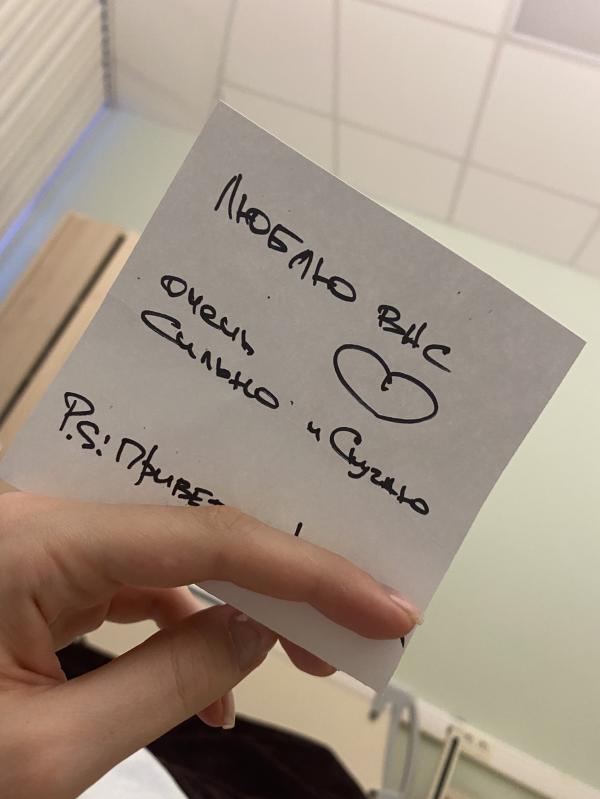 Люблю вас
очень
сильно и скучаю
P.S: Привет